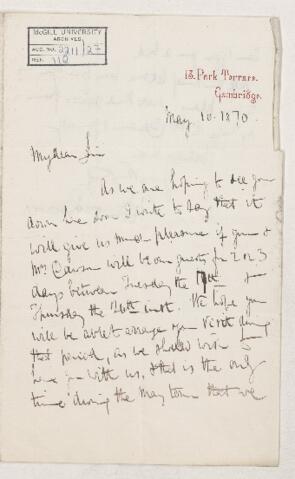 McGILL UNIVERSITY
ARCHIVES
ACC. NO. 2211/27
REF. 110
13. Park Terrace.
Cambridge.
May 10. 1870.
My dear Sir
As we are hoping to see you
down here soon I write to say that it
will give us much pleasure if you &
Mrs Dawson will be our guests for 2 or 3
days between Tuesday the 17th &
Thursday the 26th inst. We hope you
will be able to arrange your visit during
that period, as we should wish to
have you with us, & that is the only
time during the May term that we